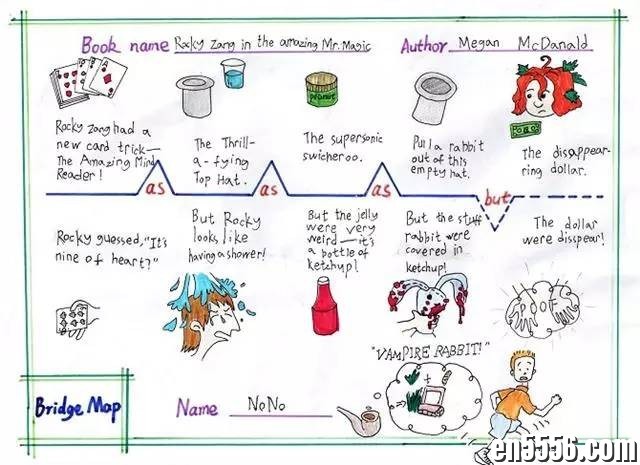 Book name Rocky Zang in the amazing Mr. Magic
Author Megan McDanald
A
peanut
Rocky zang had a
new card trick—
The Amazing Mind
Reader!
The Thrill-
a-fying
Top Hat.
The supersonic
swicheroo.
Pull a rabbit
out of this
empty hat.
The disappear-
ring dollar.
as
as
as
but
Rocky guessed,"It's
nine of heart?"
But Rocky
looks like
having a shower!
But the jelly
were very
weird—it's
a bottle of
ketchup!
But the stuff
rabbit were
covered in
ketchup!
The dollar
were disspear!
SPOOFS
"VAMPIRE RABBIT!"
+
Bridge Map
Name NoNo
en5556.com